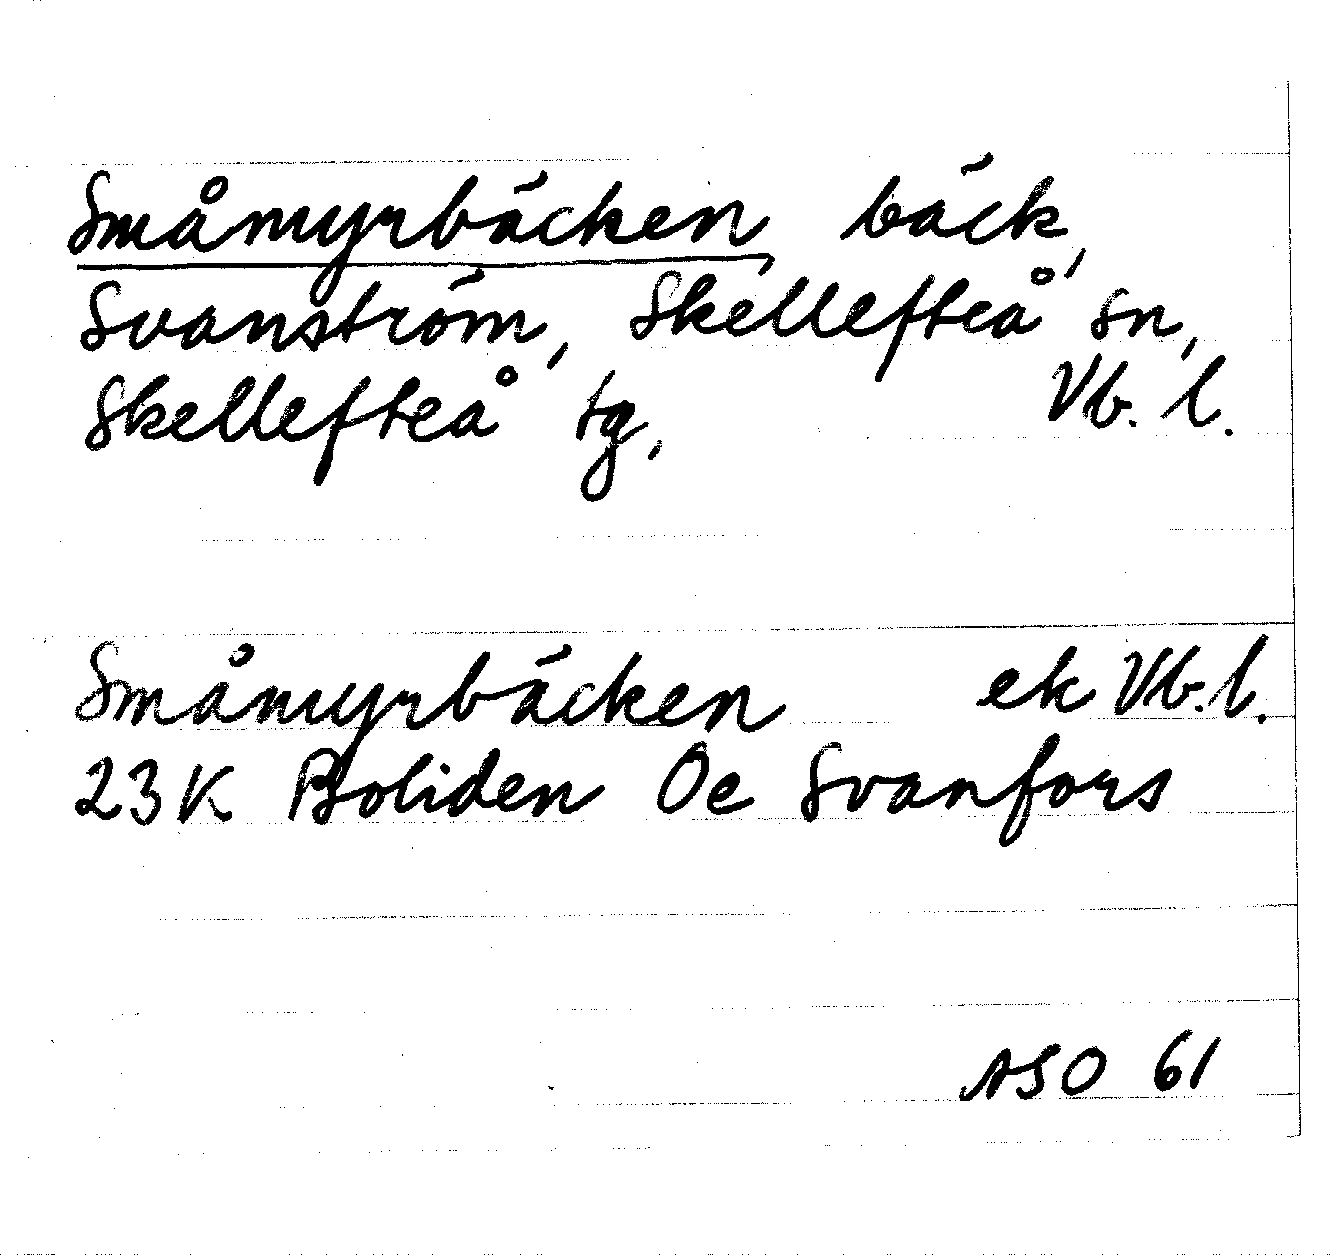 Småmyrbäcken, bäck,
Svanström, Skellefteå sn,
Skellefteå tg, Vb. l.
Småmyrbäcken ek Vb. l.
23K Boliden Öe Svanfors
ASO 61